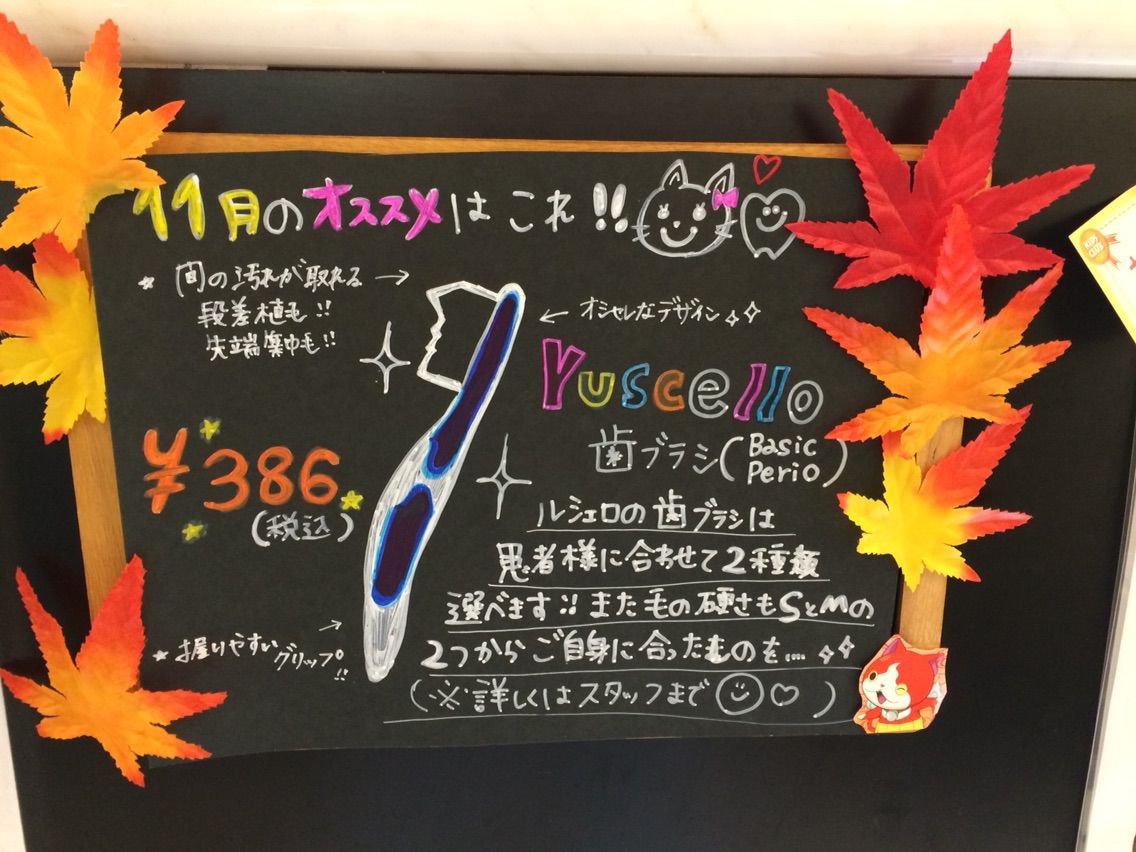 11月のオススメはこれ!!
★ 間の汚れが取れる →
段差植毛!!
先端集中毛!!
← オシャレなデザイン
Yuscello
歯ブラシ(Basic
Perio)
¥386
(税込)
ルシェロの歯ブラシは
患者様に合わせて2種類
選べます!! また毛の硬さもSとMの
2つからご自身に合ったものを....
(※詳しくはスタッフまで)
→
★ 握りやすいグリップ!!